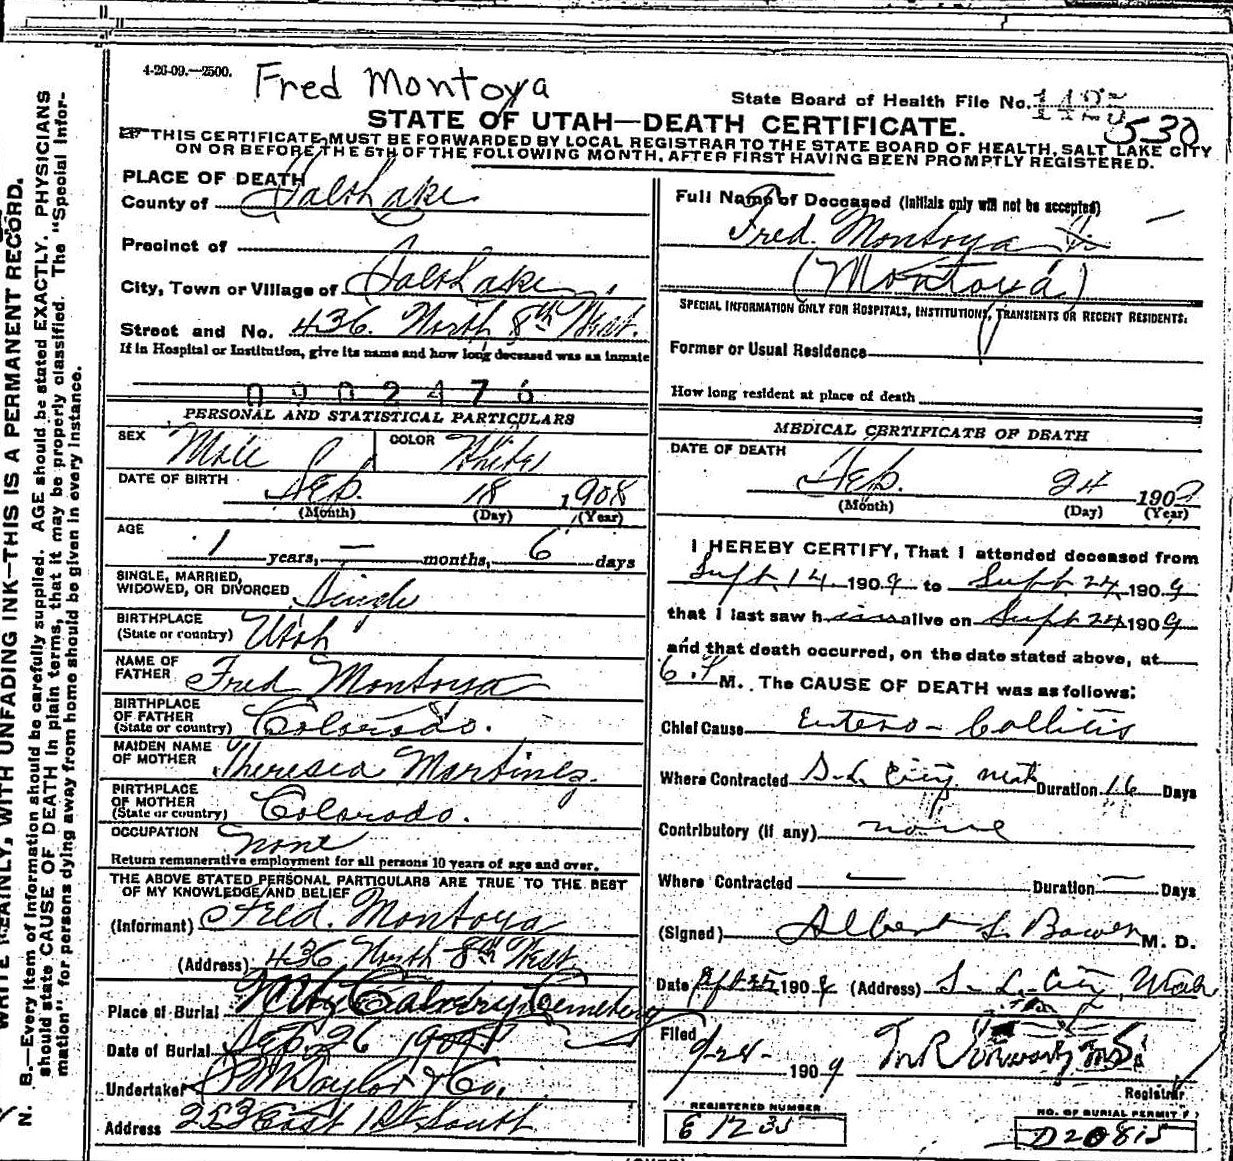 4-26-09.—2500.
Fred Montoya
State Board of Health File No.
530
STATE OF UTAH—DEATH CERTIFICATE.
THIS CERTIFICATE MUST BE FORWARDED BY LOCAL REGISTRAR TO THE STATE BOARD OF HEALTH, SALT LAKE CITY
ON OR BEFORE THE 5TH OF THE FOLLOWING MONTH, AFTER FIRST HAVING BEEN PROMPTLY REGISTERED.
PLACE OF DEATH
County of Salt Lake
Precinct of
City, Town or Village of Salt Lake
Street and No. 436 North 8th West.
If in Hospital or Institution, give its name and how long deceased was an inmate
0902476
PERSONAL AND STATISTICAL PARTICULARS
SEX Male COLOR White
DATE OF BIRTH Sep. 18 1908
(Month) (Day) (Year)
AGE
1 years, — months, 6 days
SINGLE, MARRIED,
WIDOWED, OR DIVORCED Single
BIRTHPLACE
(State or country) Utah
NAME OF
FATHER Fred Montoya
BIRTHPLACE
OF FATHER
(State or country) Colorado.
MAIDEN NAME
OF MOTHER Theresia Martinez.
BIRTHPLACE
OF MOTHER
(State or country) Colorado.
OCCUPATION None
Return remunerative employment for all persons 10 years of age and over.
THE ABOVE STATED PERSONAL PARTICULARS ARE TRUE TO THE BEST
OF MY KNOWLEDGE AND BELIEF
(Informant) Fred. Montoya
(Address) 436 North 8th West
Place of Burial Mt. Calvery Cemetery
Date of Burial Sep. 26 1909
Undertaker S. M. Taylor & Co.
Address 253 East 1st South
Full Name of Deceased (Initials only will not be accepted)
Fred. Montoya Jr.
(Montoya)
SPECIAL INFORMATION ONLY FOR HOSPITALS, INSTITUTIONS, TRANSIENTS OR RECENT RESIDENTS:
Former or Usual Residence
How long resident at place of death
MEDICAL CERTIFICATE OF DEATH
DATE OF DEATH
Sep. 24 1909
(Month) (Day) (Year)
I HEREBY CERTIFY, That I attended deceased from
Sept. 14 1909 to Sept. 24 1909
that I last saw him alive on Sept 24 1909
and that death occurred, on the date stated above, at
6. P M. The CAUSE OF DEATH was as follows:
Chief Cause Entero-Collitis
Where Contracted S. L. City Utah Duration 16 Days
Contributory (if any) none
Where Contracted — Duration — Days
(Signed) Albert S. Bower M. D.
Date Sept 25 1909 (Address) S. L. City, Utah
Filed
9/28 1909
Registrar
REGISTERED NUMBER
E 1235
NO. OF BURIAL PERMIT
D20815
N. B.—Every item of information should be carefully supplied. AGE should be stated EXACTLY. PHYSICIANS
should state CAUSE OF DEATH in plain terms, that it may be properly classified. The "Special Infor-
mation" for persons dying away from home should be given in every instance.
WRITE PLAINLY, WITH UNFADING INK—THIS IS A PERMANENT RECORD.